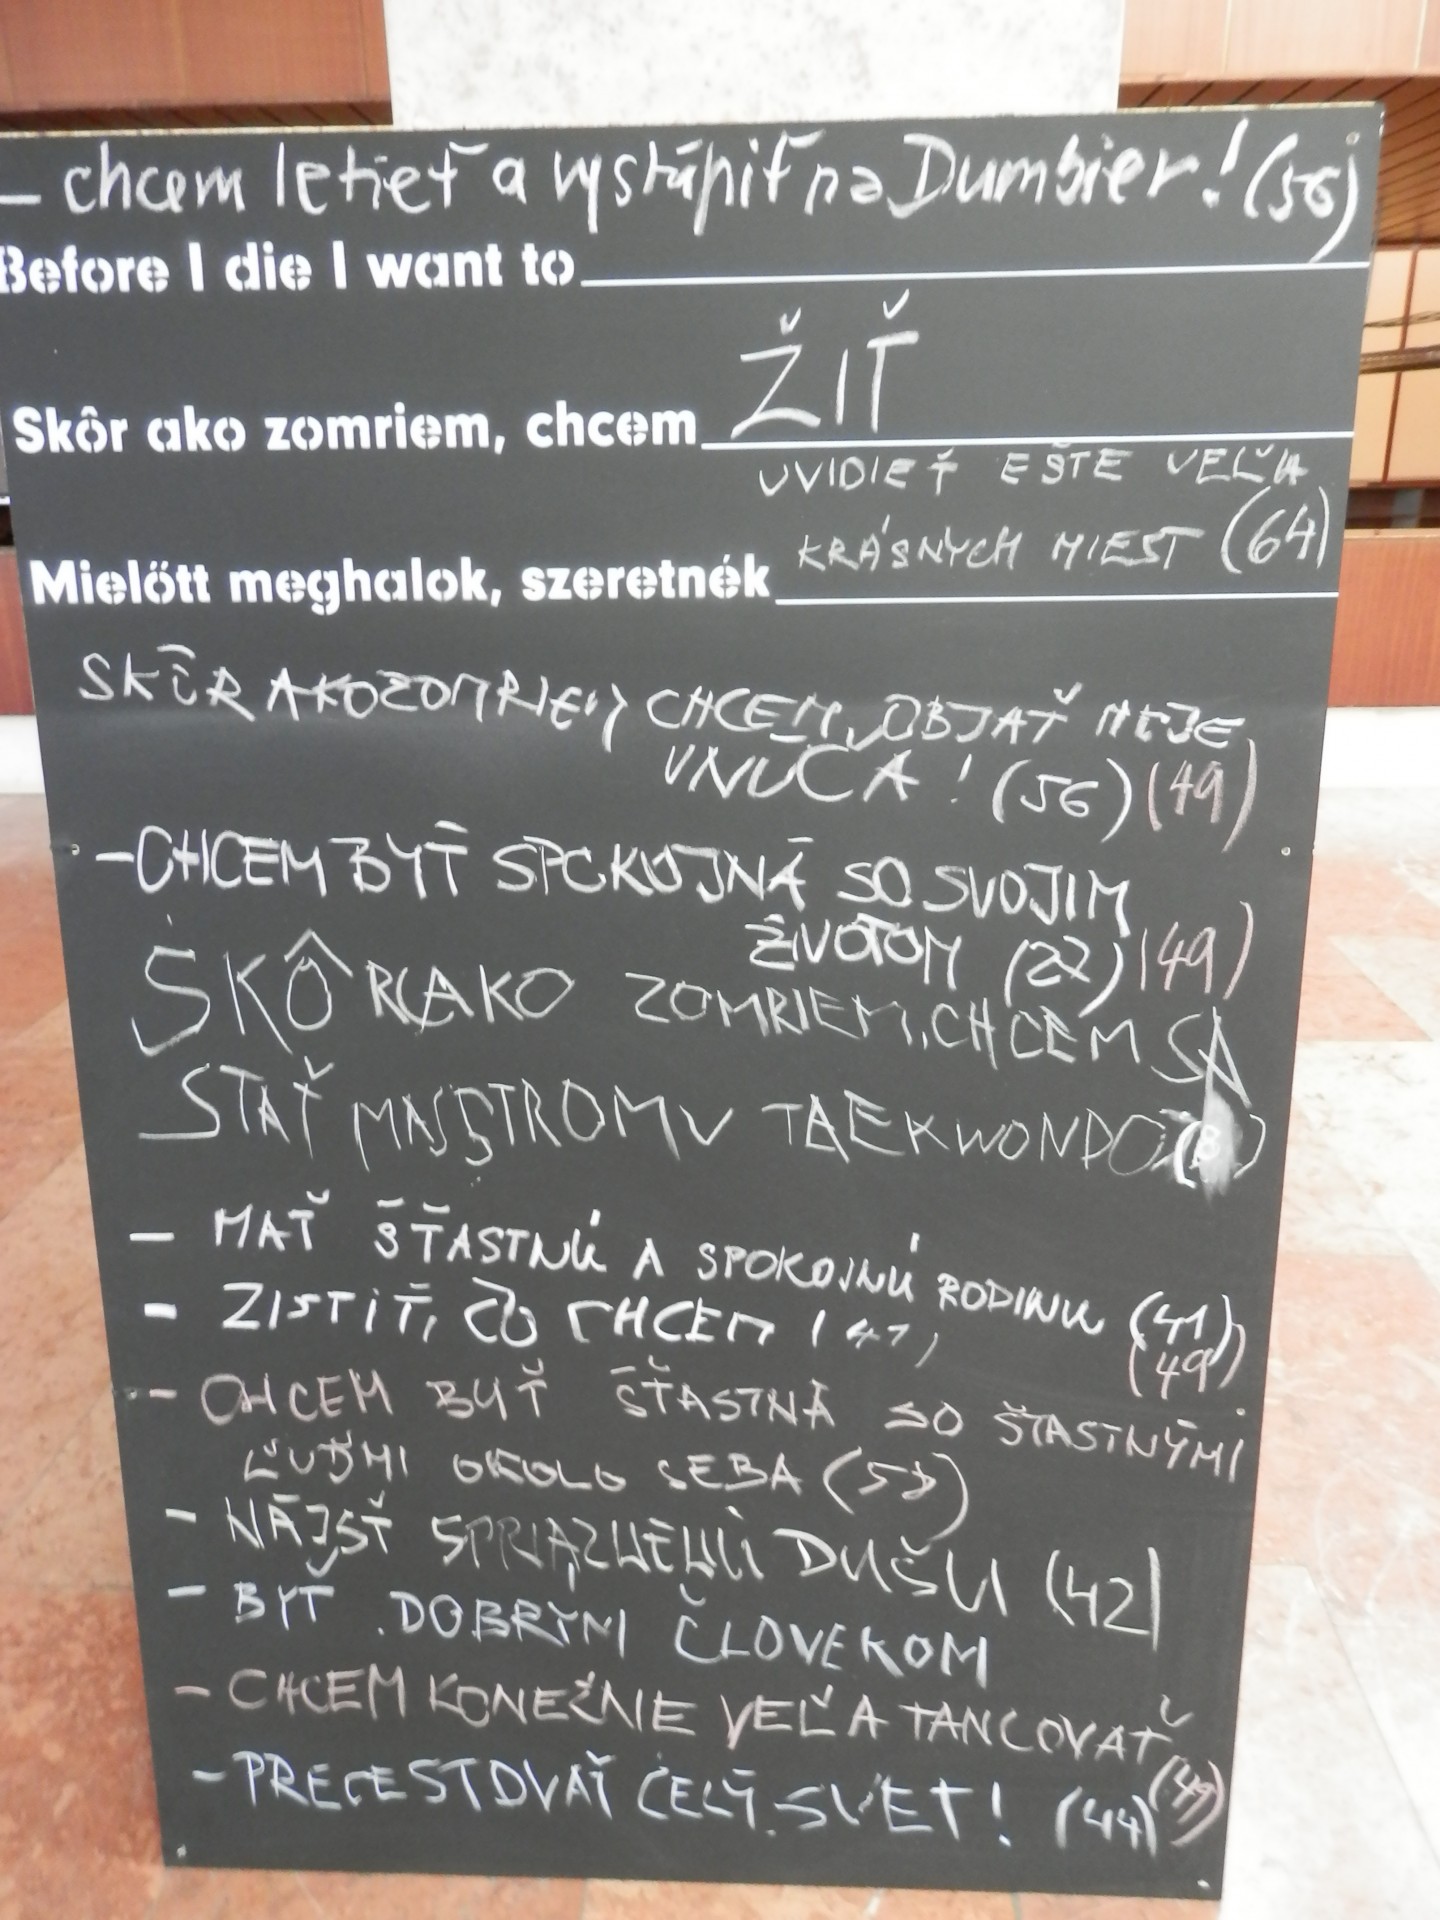 - chcem letieť a vystúpiť na Dumbier! (56)
Before I die I want to
ŽIŤ
Skôr ako zomriem, chcem
UVIDIEŤ EŠTE VEĽA
KRÁSNYCH MIEST (64)
Mielőtt meghalok, szeretnék
SKÔR AKO ZOMRIEM CHCEM, OBJAŤ MEJE
VNÚČA! (56) (49)
- CHCEM BYŤ SPOKOJNÁ SO SVOJIM
ŽIVOTOM (22) (49)
SKÔR AKO ZOMRIEM, CHCEM SA
STAŤ TAEKWONDO (8)
- MAŤ ŠŤASTNÚ A SPOKOJNÚ RODINU (41)
(49)
- ZISTIŤ, ČO CHCEM (41)
- CHCEM BYŤ ŠŤASTNÁ SO ŠŤASTNÝMI
ĽUĎMI OKOLO SEBA
- NÁJSŤ SPRIAZNENÚ DUŠU (42)
- BYŤ DOBRÝM ČLOVEKOM
- CHCEM KONEČNIE VEĽA TANCOVAŤ
(49)
- PRECESTOVAŤ CELÝ SVET! (44)